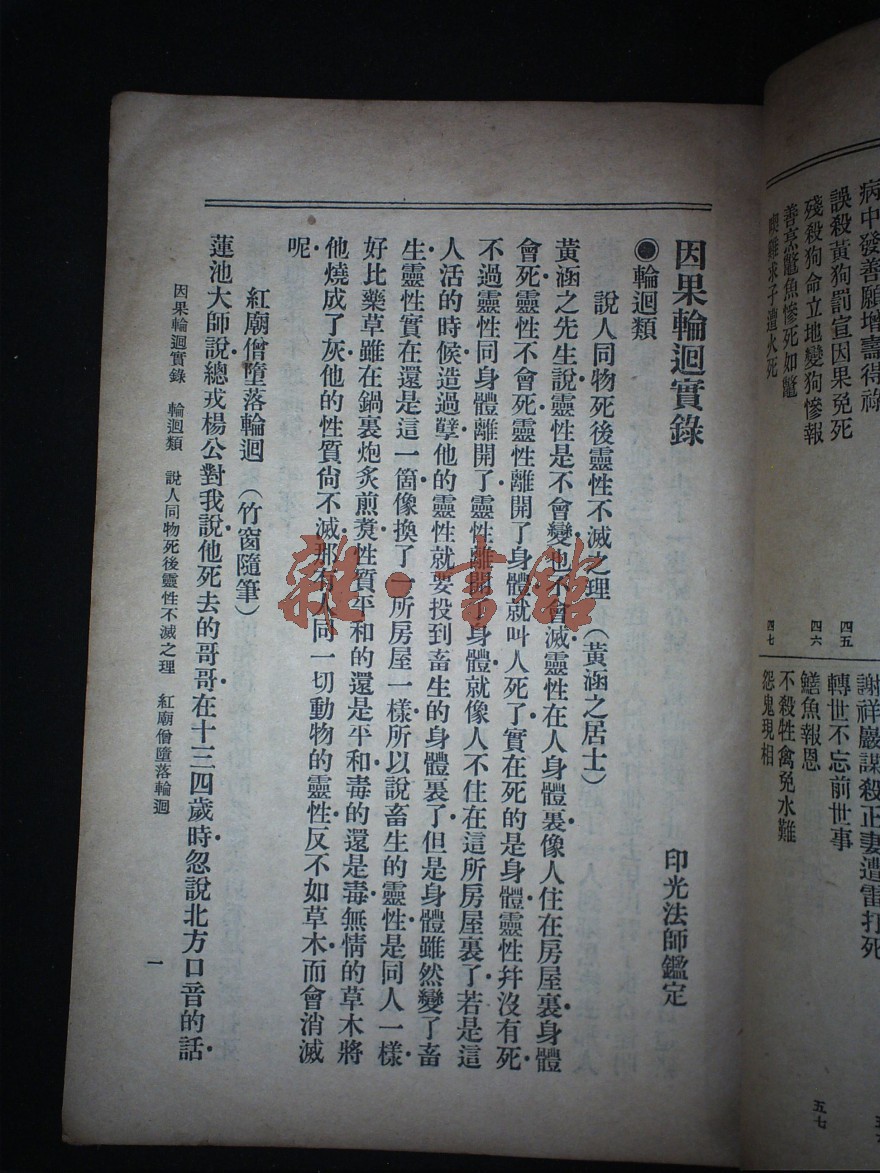 病中發善願增壽得祿
誤殺黃狗罰宣因果免死
四五
殘殺狗命立地變狗慘報
四六
善烹鼈魚慘死如鼈
喫雞求子遭火死
四七
謝祥巖謀殺正妻遭雷打死
轉世不忘前世事
鱔魚報恩
五七
不殺牲禽免水難
怨鬼現相
因果輪迴實錄
印光法師鑑定
●輪迴類
說人同物死後靈性不滅之理（黃涵之居士）
黃涵之先生說靈性是不會變也不會滅靈性在人身體裏像人住在房屋裏身體
會死靈性不會死靈性離開了身體就叫人死了實在死的是身體靈性幷沒有死
不過靈性同身體離開了靈性離開了身體就像人不住在這所房屋裏了若是這
人活的時候造過孽他的靈性就要投到畜生的身體裏了但是身體雖然變了畜
生靈性實在還是這一箇像換了一所房屋一樣所以說畜生的靈性是同人一樣
好比藥草雖在鍋裏炮炙煎熬性質平和的還是平和毒的還是毒無情的草木將
他燒成了灰他的性質尙不滅那有人同一切動物的靈性反不如草木而會消滅
呢
紅廟僧墮落輪迴（竹窗隨筆）
蓮池大師說總戎楊公對我說他死去的哥哥在十三四歲時忽說北方口音的話
因果輪迴實錄　輪迴類　說人同物死後靈性不滅之理　紅廟僧墮落輪迴
一
雜·書館